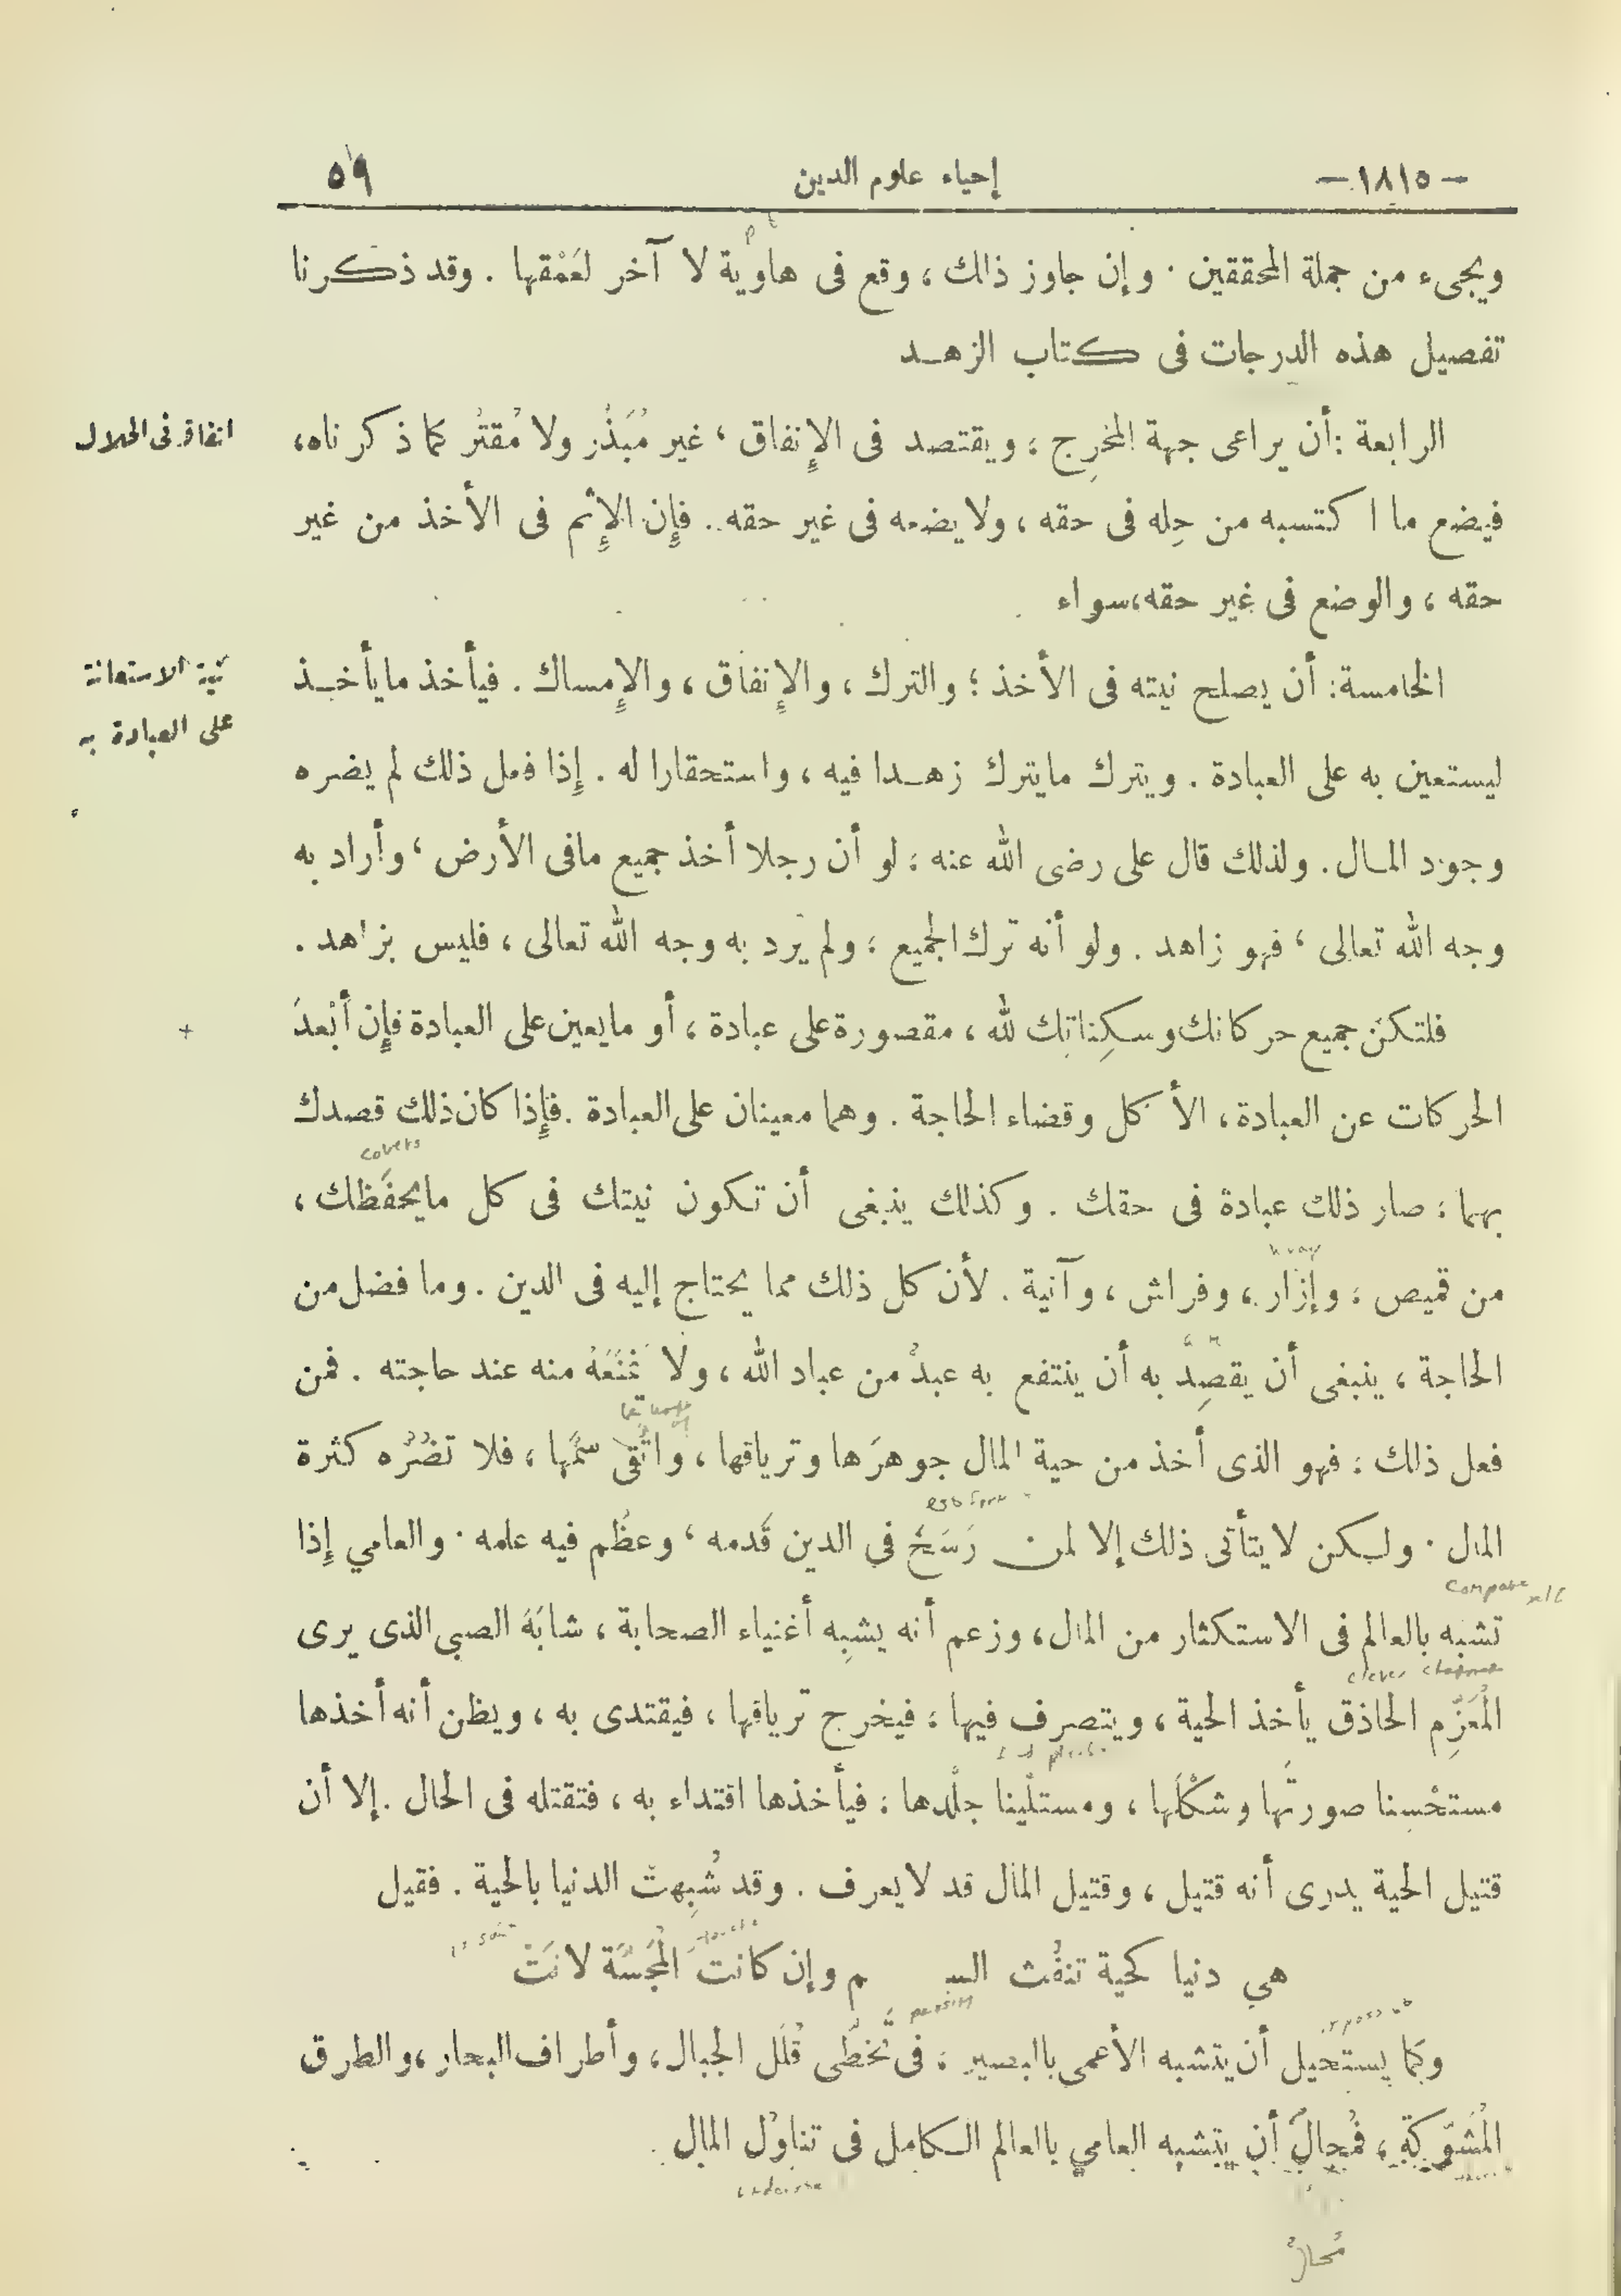 -١٨١٥- إحياء علوم الدين ٥٩
ويجىء من جملة المحققين . وإن جاوز ذالك ، وقع فى هاوية لا آخر لعَمْقها . وقد ذكرنا
تفصيل هذه الدرجات فى كتاب الزهد
انفاقه فى الحلال
الرابعة : أن يراعى جهة المخرِج ، ويقتصد فى الإنفاق ، غير مُبَذِّر ولا مُقتِر كما ذكرناه،
فيضع ما اكتسبه من حِله فى حقه ، ولا يضعه فى غير حقه . فإن الإثم فى الأخذ من غير
حقه ، والوضع فى غير حقه، سواء
نية الاستعانة
على العبادة به
الخامسة: أن يصلح نيته فى الأخذ ؛ والترك ، والإنفاق ، والإمساك . فيأخذ مايأخذ
ليستعين به على العبادة . ويترك مايترك زهدا فيه ، واستحقارا له . إذا فعل ذلك لم يضره
وجود المال . ولذلك قال على رضى الله عنه : لو أن رجلا أخذ جميع مافى الأرض ، وأراد به
وجه الله تعالى ، فهو زاهد . ولو أنه ترك الجميع ؛ ولم يرد به وجه الله تعالى ، فليس بزاهد .
+
فلتكن جميع حركاتك وسكِناتِك لله ، مقصورة على عبادة ، أو مايعين على العبادة فإن أبْعدَ
الحركات عن العبادة ، الأكل وقضاء الحاجة . وهما معينان على العبادة . فإذا كان ذلك قصدك
covers
بهما : صار ذلك عبادة فى حقك . وكذلك ينبغى أن تكون نيتك فى كل مايحفَظك ،
wrap
من قميص ؛ وإزار ، وفراش ، وآنية . لأن كل ذلك مما يحتاج إليه فى الدين . وما فضل من
الحاجة ، ينبغى أن يقصِد به أن ينتفع به عبدٌ من عباد الله ، ولا يَمْنَعَهُ منه عند حاجته . فمن
فعل ذلك : فهو الذى أخذ من حية المال جوهرَها وترياقها ، واتَّقى سمَّها ، فلا تضُرُّه كثرة
المال . ولكن لا يتأتى ذلك إلا لمن رَسَخَ فى الدين قَدمه ، وعظُم فيه علمه . والعامي إذا
compare
تشبه بالعالم فى الاستكثار من المال، وزعم أنه يشبِه أغنياء الصحابة ، شابَهَ الصبى الذى يرى
clever
المُعَزِّم الحاذق يأخذ الحية ، ويتصرف فيها ؛ فيخرج ترياقها ، فيقتدى به ، ويظن أنه أخذها
مستحْسِنا صورتَها وشكْلَها ، ومستلْينا جلْدها ؛ فيأخذها اقتداء به ، فتقتله فى الحال . إلا أن
قتيل الحية يدرى أنه قتيل ، وقتيل المال قد لايعرف . وقد شُبِهتْ الدنيا بالحية . فقيل
هي دنيا كحية تنفُث الس م وإن كانت المَجَسَّة لانَتْ
وكما يستحيل أن يتشبه الأعمى باابصير ؛ فى تَخَطِّى قُلَل الجبال ، وأطراف البحار ، والطرق
المُشَوَّكة ، فمُحالٌ أن يتشبه العامي باالعالم الكامل فى تناوُل المال
مُحالٌ